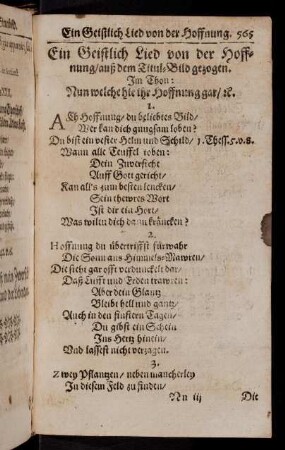 Ein Geistlich Lied von der Hoffnung. 565
Ein Geistlich Lied von der Hoff-
nung/ auß dem Titul-Bild gezogen.
Im Thon:
Nun welche hie ihr Hoffnung gar/ ꝛc.
1.
Ach Hoffnung/ du beliebtes Bild/
Wer kan dich gungsam loben?
Du bist ein vester Helm und Schild/ 1. Thess. 5. v. 8.
Wann alle Teuffel toben:
Dein Zuversicht
Auff Gott gericht/
Kan all's zum besten lencken/
Sein thewres Wort
Ist dir ein Hort/
Was wiltu dich dann kräncken?
2.
Hoffnung du übertriffst fürwahr
Die Sonn aus Himmels-Mawren/
Die sieht gar offt verdunckelt dar/
Daß Lufft und Erden trawren:
Aber dein Glantz
Bleibt hell und gantz/
Auch in den finstern Tagen/
Du gibst ein Schein
Ins Hertz hinein/
Und lassest nicht verzagen.
3.
Zwey Pflantzen/ neben mancherley
In diesem Feld zu finden/
Nn iij Die